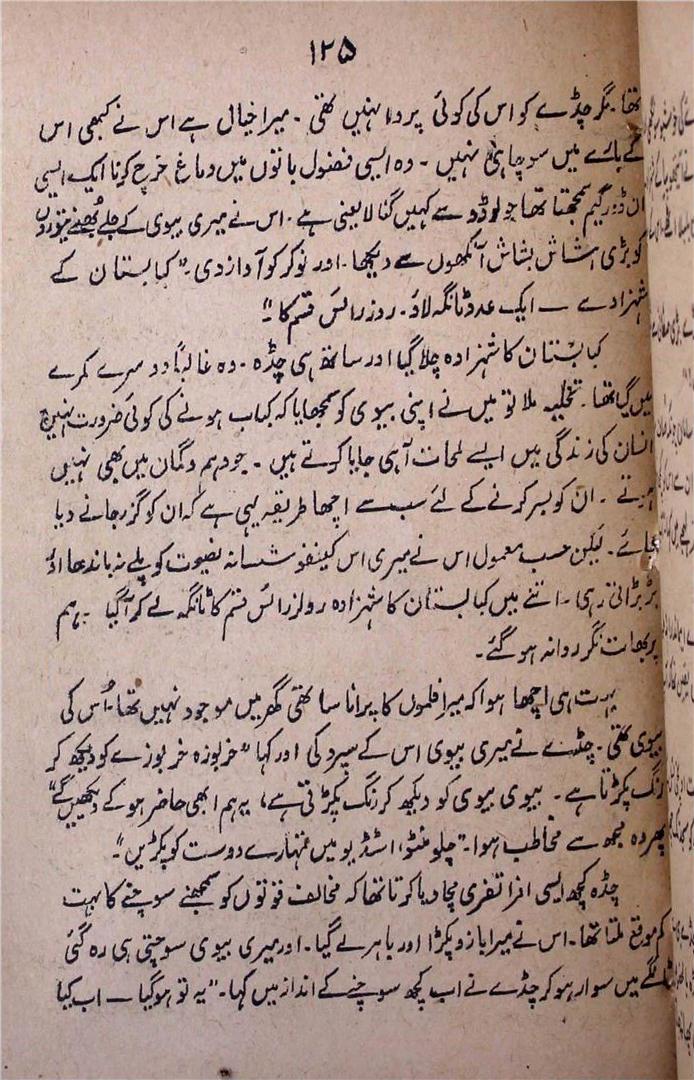 ۱۲۵
تھا۔ مگر چڈے کو اس کی کوئی پروا نہیں تھی۔ میرا خیال ہے اس نے کبھی اس
کے بارے میں سوچا ہی نہیں۔ وہ ایسی فضول باتوں میں دماغ خرچ کرنا ایک ایسی
ان ڈور گیم سمجھتا تھا جو لوڈو سے کہیں گنا لایعنی ہے۔ اس نے میری بیوی کے جلے بھنے تیوروں
کو بڑی ہشاش بشاش آنکھوں سے دیکھا۔ اور نوکر کو آواز دی۔ "کبابستان کے
شہزادے — ایک عدد ٹانگہ لاؤ۔ روز رائس قسم کا"
کبابستان کا شہزادہ چلا گیا اور ساتھ ہی چڈہ۔ وہ غالباً دوسرے کمرے
میں گیا تھا۔ تخلیہ ملا تو میں نے اپنی بیوی کو سمجھایا کہ کباب ہونے کی کوئی ضرورت نہیں
انسان کی زندگی میں ایسے لمحات آ ہی جایا کرتے ہیں۔ جو وہم و گمان میں بھی نہیں
ہوتے۔ ان کو بسر کرنے کے لئے سب سے اچھا طریقہ یہی ہے کہ ان کو گزر جانے دیا
جائے۔ لیکن حسب معمول اس نے میری اس کینفوشسانہ نصیحت کو پلے نہ باندھا اور
بڑبڑاتی رہی۔ اتنے میں کبابستان کا شہزادہ رولز رائس قسم کا ٹانگہ لے کر آ گیا۔ ہم
پربھات نگر روانہ ہو گئے۔
بہت ہی اچھا ہوا کہ میرا فلموں کا پرانا ساتھی گھر میں موجود نہیں تھا۔ اُس کی
بیوی تھی۔ چڈے نے میری بیوی اس کے سپرد کی اور کہا "خربوزہ خربوزے کو دیکھ کر
رنگ پکڑتا ہے۔ بیوی بیوی کو دیکھ کر رنگ پکڑتی ہے، یہ ہم ابھی حاضر ہو کے دیکھیں گے"
پھر وہ مجھ سے مخاطب ہوا۔ "چلو منٹو، اسٹڈیو میں تمہارے دوست کو پکڑیں"۔
چڈہ کچھ ایسی افراتفری مچا دیا کرتا تھا کہ مخالف قوتوں کو سمجھنے سوچنے کا بہت
کم موقع ملتا تھا۔ اس نے میرا بازو پکڑا اور باہر لے گیا۔ اور میری بیوی سوچتی ہی رہ گئی
ٹانگے میں سوار ہو کر چڈے نے اب کچھ سوچنے کے انداز میں کہا۔ "یہ تو ہو گیا — اب کیا